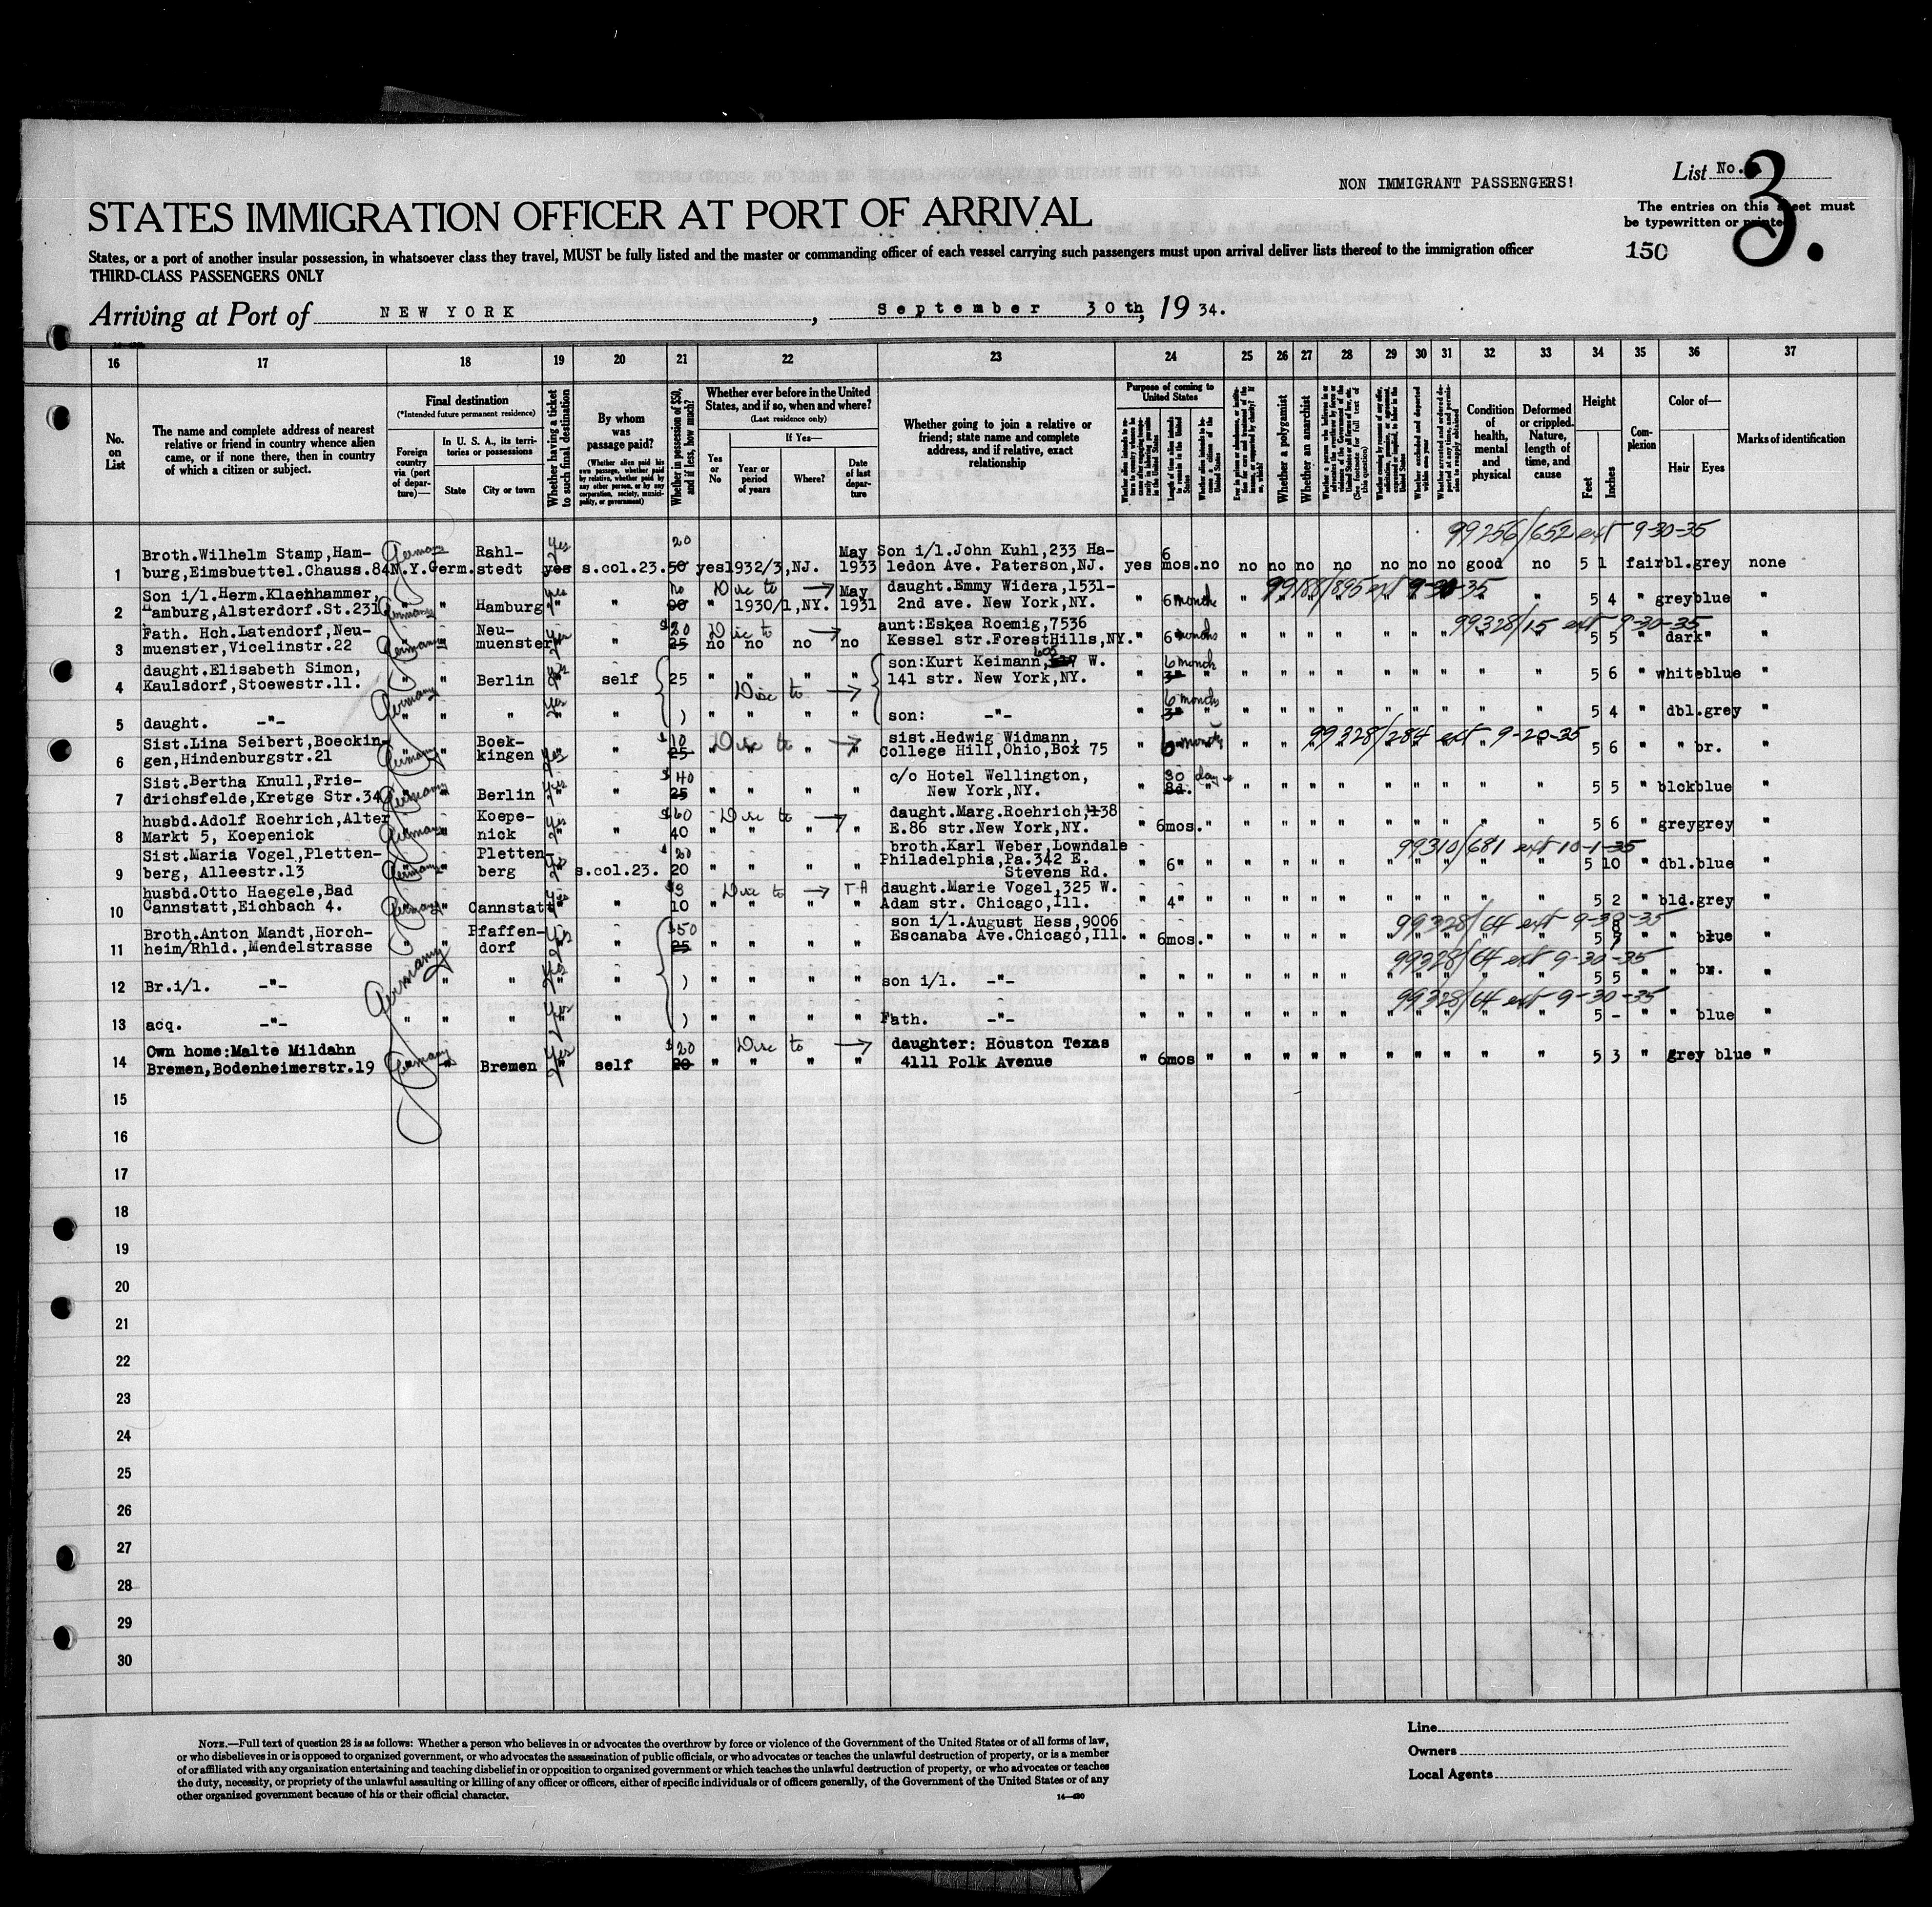 List No. 3.
NON IMMIGRANT PASSENGERS!
STATES IMMIGRATION OFFICER AT PORT OF ARRIVAL
The entries on this sheet must
be typewritten or printed
150
States, or a port of another insular possession, in whatsoever class they travel, MUST be fully listed and the master or commanding officer of each vessel carrying such passengers must upon arrival deliver lists thereof to the immigration officer
THIRD-CLASS PASSENGERS ONLY
Arriving at Port of NEW YORK, September 30th, 19 34.
16 17 18 19 20 21 22 23 24 25 26 27 28 29 30 31 32 33 34 35 36 37
No. on List
The name and complete address of nearest
relative or friend in country whence alien
came, or if none there, then in country
of which a citizen or subject.
Final destination
(*Intended future permanent residence)
Foreign country via (port of departure)—
In U. S. A., its territories or possessions
State
City or town
Whether having a ticket to such final destination
By whom was passage paid?
(Whether alien paid his own passage, whether paid by relative, whether paid by any other person, or by any corporation, society, municipality, or government)
Whether in possession of $50, and if less, how much?
Whether ever before in the United
States, and if so, when and where?
(Last residence only)
Yes or No
If Yes—
Year or period of years
Where?
Date of last departure
Whether going to join a relative or
friend; state name and complete
address, and if relative, exact
relationship
Purpose of coming to United States
Length of time alien intends to remain in the United States
Whether a polygamist
Whether an anarchist
Condition of health, mental and physical
Deformed or crippled. Nature, length of time, and cause
Height
Feet
Inches
Complexion
Color of—
Hair
Eyes
Marks of identification
99256/652 ext 9-30-35
1 Broth.Wilhelm Stamp,Ham- Germany Rahl- yes 20 May Son i/l.John Kuhl,233 Ha- 6
burg,Eimsbuettel.Chauss.84 N.Y.Germ. stedt yes s.col.23. 50 yes 1932/3,NJ. 1933 ledon Ave. Paterson,NJ. yes mos. no no no no no no no no good no 5 1 fair bl. grey none
2 Son i/l.Herm.Klaehhammer, yes no Disc to → May daught.Emmy Widera,1531- 99188/895 ext 9-30-35
Hamburg,Alsterdorf.St.231 Germany " Hamburg " " " 1930/1,NY. 1931 2nd ave. New York,NY. " 6 month " " " " " " " " " " 5 4 " grey blue "
3 Father. Hch.Latendorf,Neu- Neu- $20 Disc to → aunt:Eskea Roemig,7536 99328/15 ext 9-30-35
muenster,Vicelinstr.22 Germany " muenster yes " 25 no no no no Kessel str.ForestHills,NY. " 6 months " " " " " " " " " " 5 5 " dark " "
4 daught.Elisabeth Simon, yes son:Kurt Keimann, 605 W. 6 month
Kaulsdorf,Stoewestr.11. " " Berlin self 25 " " " " 141 str. New York,NY. " 3" " " " " " " " " " " 5 6 " white blue "
5 Germany yes Disc to → 6 months
daught. -"- " " " " ) " " " " son: -"- " 3" " " " " " " " " " " 5 4 " dbl. grey "
6 Sist.Lina Seibert,Boeckin- Boek- $10 Disc to → sist.Hedwig Widmann, 99328/284 ext 9-20-35
gen,Hindenburgstr.21 Germany " kingen yes " 25 " " " " College Hill,Ohio,Box 75 " 6 months " " " " " " " " " 5 6 " " br. "
7 Sist.Bertha Knull,Frie- yes $40 c/o Hotel Wellington, 30 days
drichsfelde,Kretge Str.34 Germany " Berlin " " 25 " " " " New York,NY. " 8d. " " " " " " " " " " " 5 5 " blck blue "
8 husbd.Adolf Roehrich,Alter Koepe- yes $60 Disc to → daught.Marg.Roehrich,438
Markt 5, Koepenick Germany " nick " " 40 " " " " E.86 str.New York,NY. " 6mos. " " " " " " " " " " " 5 6 " grey grey "
9 Sist.Maria Vogel,Pletten- Pletten- $20 broth.Karl Weber,Lowndale 99310/681 ext 10-1-35
berg, Alleestr.13 Germany " berg yes s.col.23. 20 " " " " Philadelphia,Pa.342 E.
Stevens Rd. " 6" " " " " " " " " " " " 5 10 " dbl. blue "
10 husbd.Otto Haegele,Bad yes $9 Disc to → T A daught.Marie Vogel,325 W.
Cannstatt,Eichbach 4. Germany " Cannstatt " " 10 " " " " Adam str. Chicago,Ill. " 4" " " " " " " " " " " " 5 2 " bld. grey "
11 Broth.Anton Mandt,Horch- Pfaffen- yes $50 son i/l.August Hess,9006 99328/64 ext 9-30-35
heim/Rhld.,Mendelstrasse " " dorf " " 25 " " " " Escanaba Ave.Chicago,Ill. " 6mos. " " " " " " " " " " " 5 8 " " blue "
12 Germany yes 99328/64 ext 9-30-35
Br.i/l. -"- " " " " ) " " " " son i/l. -"- " " " " " " " " " " " " " 5 5 " " br. "
13 yes 99328/64 ext 9-30-35
acq. -"- " " " " " ) " " " " Fath. -"- " " " " " " " " " " " " " 5 - " " blue "
14 Own home:Malte Mildahn yes $20 Disc to → daughter: Houston Texas
Bremen,Bodenheimerstr.19 Germany " Bremen " self 20 " " " " 4111 Polk Avenue " 6mos " " " " " " " " " " " 5 3 " grey blue "
15
16
17
18
19
20
21
22
23
24
25
26
27
28
29
30
NOTE.—Full text of question 28 is as follows: Whether a person who believes in or advocates the overthrow by force or violence of the Government of the United States or of all forms of law,
or who disbelieves in or is opposed to organized government, or who advocates the assassination of public officials, or who advocates or teaches the unlawful destruction of property, or is a member
of or affiliated with any organization entertaining and teaching disbelief in or opposition to organized government or which teaches the unlawful destruction of property, or who advocates or teaches
the duty, necessity, or propriety of the unlawful assaulting or killing of any officer or officers, either of specific individuals or of officers generally, of the Government of the United States or of any
other organized government because of his or their official character.
14—430
Line
Owners
Local Agents